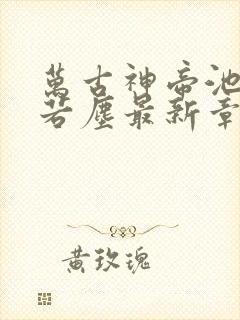 萬古神帝池
若塵最新章
黃玫瑰